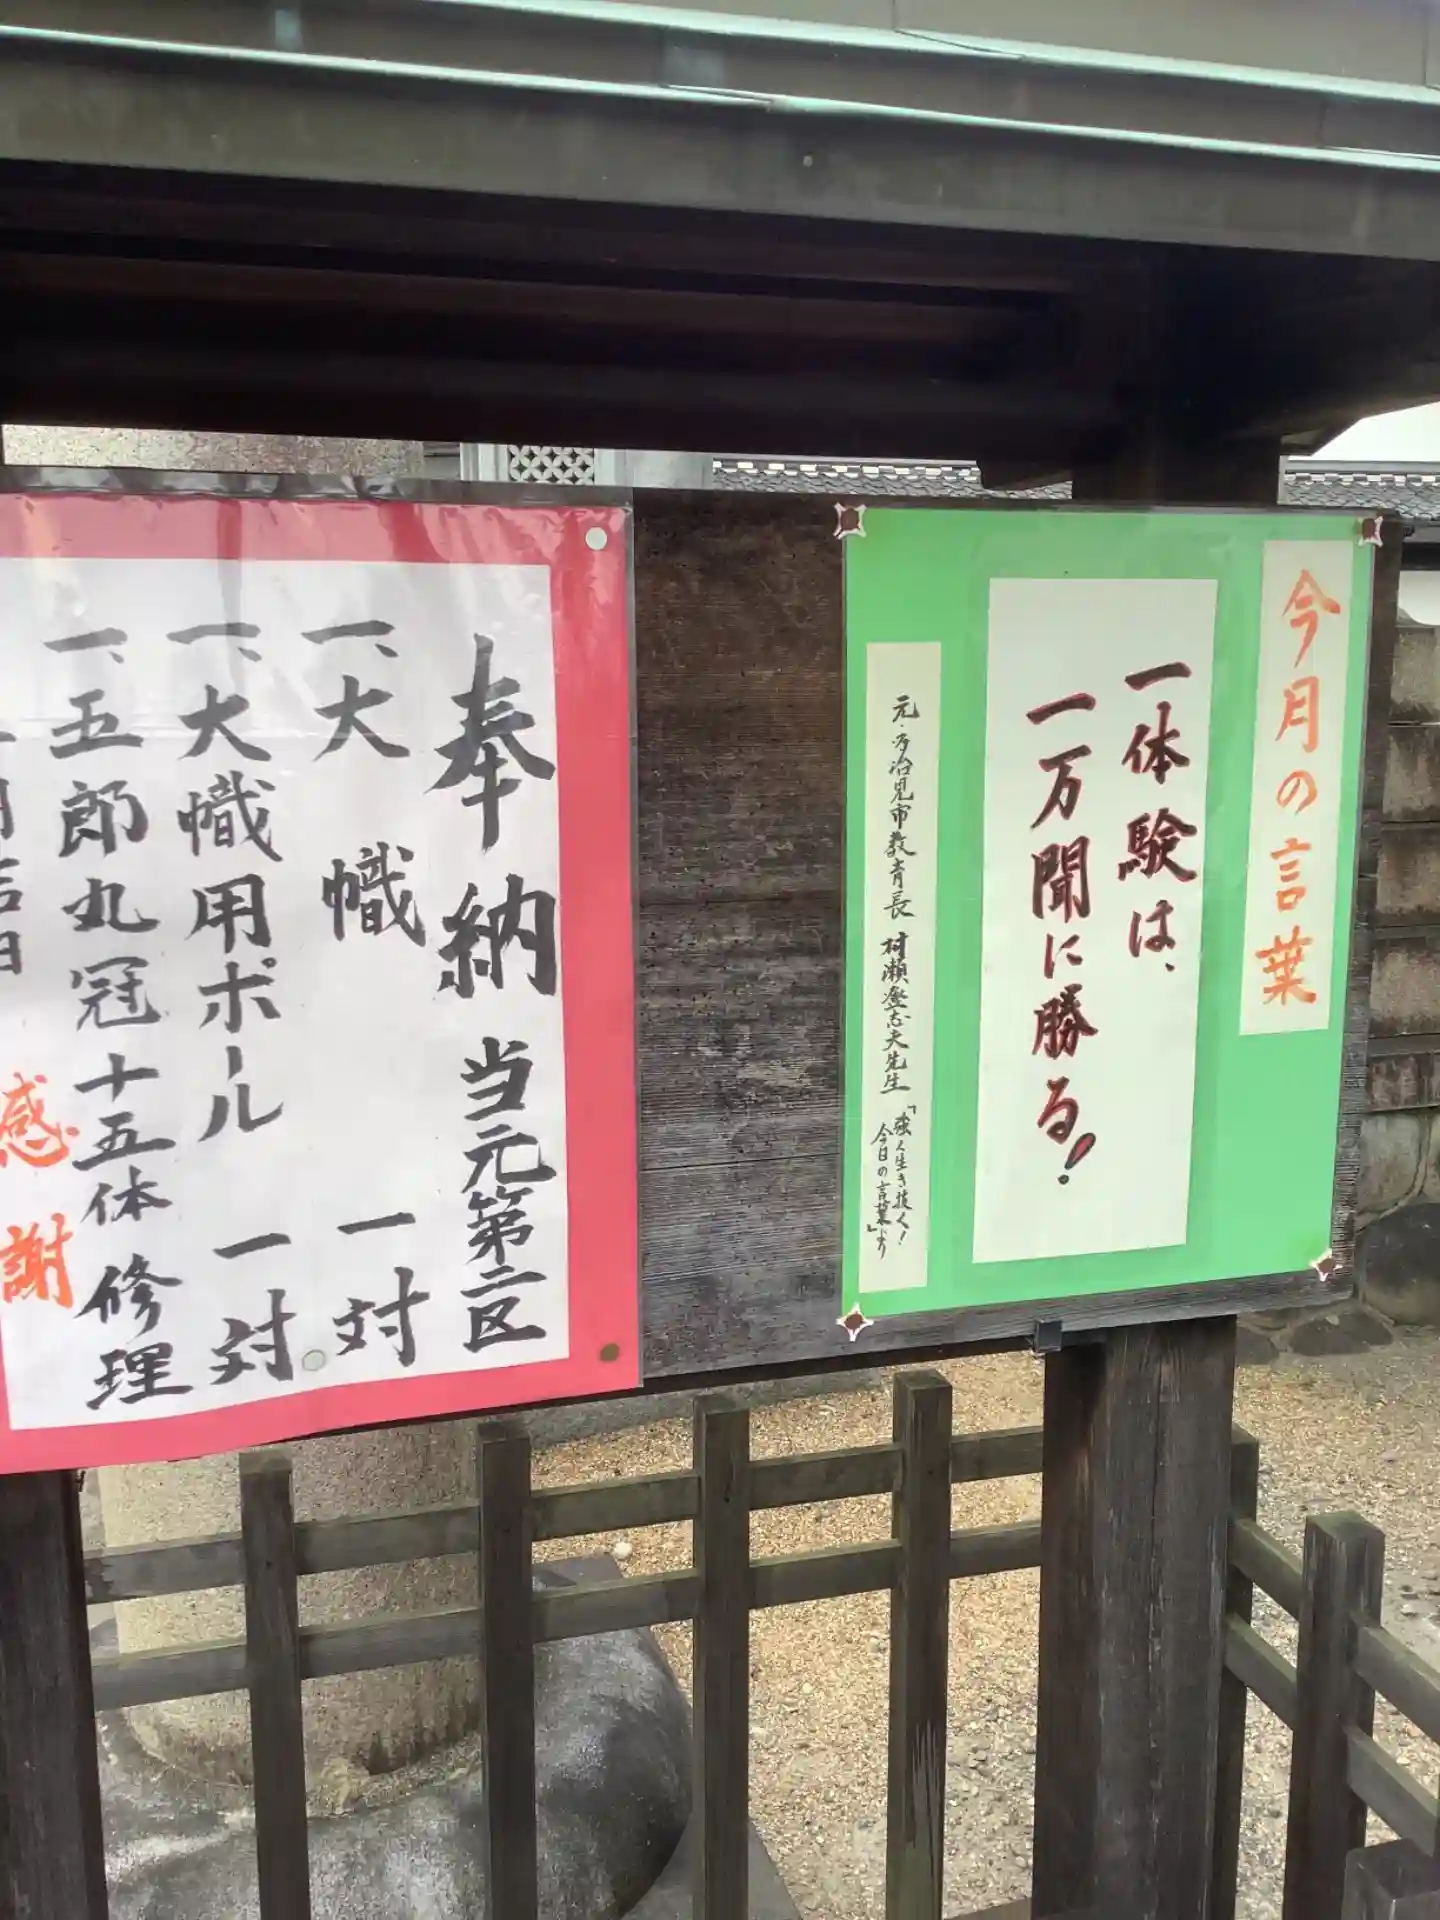 今月の言葉
一体験は、
一万聞に勝る!
元・多治見市教育長 村瀬登志夫先生 「強く生き抜く!
今日の言葉」より
奉納 当元第二区
一、大幟 一対
一、大幟用ポール 一対
一、五郎丸冠十五体修理
感謝